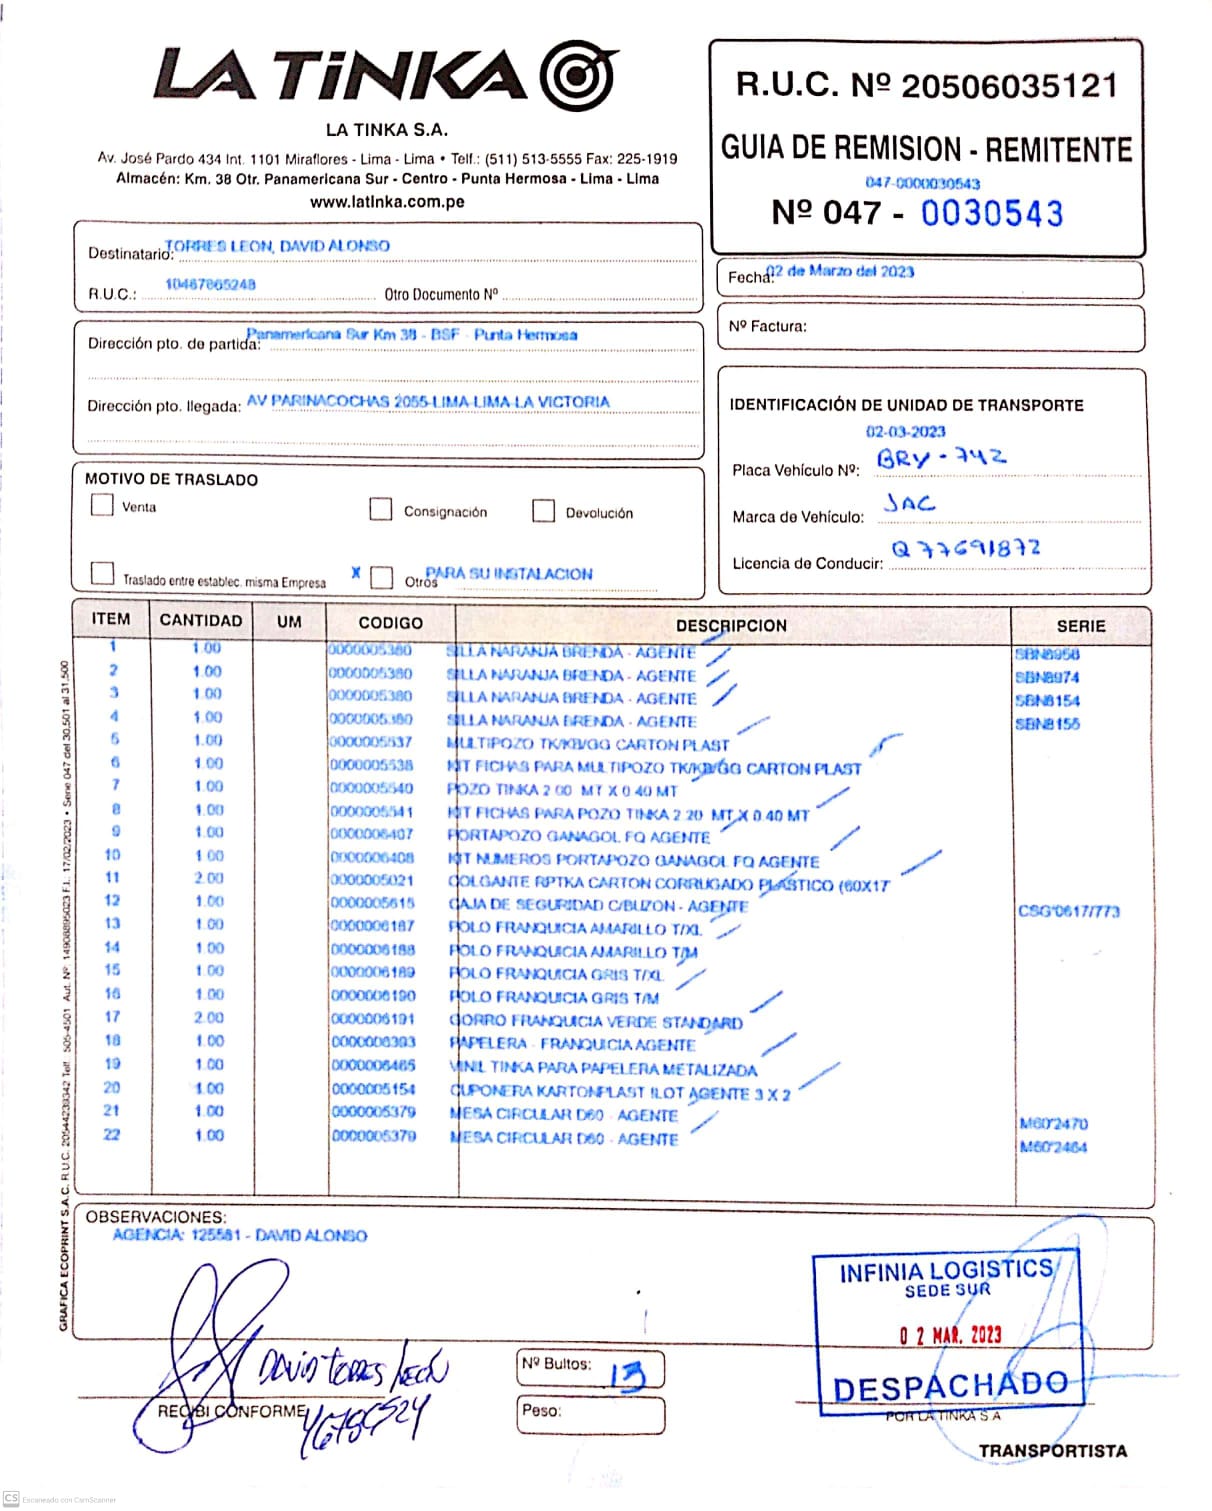 LA TiNKA
LA TINKA S.A.
Av. José Pardo 434 Int. 1101 Miraflores - Lima - Lima • Telf.: (511) 513-5555 Fax: 225-1919
Almacén: Km. 38 Otr. Panamericana Sur - Centro - Punta Hermosa - Lima - Lima
www.latinka.com.pe
R.U.C. Nº 20506035121
GUIA DE REMISION - REMITENTE
047-0000030543
Nº 047 - 0030543
Destinatario: TORRES LEON, DAVID ALONSO
R.U.C.: 10467865248 Otro Documento Nº
Fecha: 02 de Marzo del 2023
Nº Factura:
Dirección pto. de partida: Panamericana Sur Km 38 - BSF - Punta Hermosa
Dirección pto. llegada: AV PARINACOCHAS 2055-LIMA-LIMA-LA VICTORIA
IDENTIFICACIÓN DE UNIDAD DE TRANSPORTE
02-03-2023
Placa Vehículo Nº: BRY-742
Marca de Vehículo: JAC
Licencia de Conducir: Q77691872
MOTIVO DE TRASLADO
Venta Consignación Devolución
Traslado entre establec. misma Empresa X Otros PARA SU INSTALACION
ITEM CANTIDAD UM CODIGO DESCRIPCION SERIE
1 1.00 0000005380 SILLA NARANJA BRENDA - AGENTE SBN8958
2 1.00 0000005380 SILLA NARANJA BRENDA - AGENTE SBN8974
3 1.00 0000005380 SILLA NARANJA BRENDA - AGENTE SBN8154
4 1.00 0000005380 SILLA NARANJA BRENDA - AGENTE SBN8155
5 1.00 0000005537 MULTIPOZO TK/KB/GG CARTON PLAST
6 1.00 0000005538 KIT FICHAS PARA MULTIPOZO TK/KB/GG CARTON PLAST
7 1.00 0000005540 POZO TINKA 2 00 MT X 0 40 MT
8 1.00 0000005541 KIT FICHAS PARA POZO TINKA 2 20 MT X 0 40 MT
9 1.00 0000006407 PORTAPOZO GANAGOL FQ AGENTE
10 1 00 0000006408 KIT NUMEROS PORTAPOZO GANAGOL FQ AGENTE
11 2.00 0000005021 COLGANTE RPTKA CARTON CORRUGADO PLASTICO (60X17
12 1.00 0000005615 CAJA DE SEGURIDAD C/BUZON - AGENTE CSG'0617/773
13 1.00 0000006187 POLO FRANQUICIA AMARILLO T/XL
14 1.00 0000006188 POLO FRANQUICIA AMARILLO T/M
15 1.00 0000006189 POLO FRANQUICIA GRIS T/XL
16 1.00 0000006190 POLO FRANQUICIA GRIS T/M
17 2.00 0000006191 GORRO FRANQUICIA VERDE STANDARD
18 1.00 0000006393 PAPELERA - FRANQUICIA AGENTE
19 1.00 0000006465 VINIL TINKA PARA PAPELERA METALIZADA
20 1.00 0000005154 CUPONERA KARTONPLAST ILOT AGENTE 3 X 2
21 1.00 0000005379 MESA CIRCULAR D60 - AGENTE M60'2470
22 1.00 0000005379 MESA CIRCULAR D60 - AGENTE M60'2464
GRAFICA ECOPRINT S.A.C. R.U.C. 20544239342 Telf. 505-4501 Aut. Nº. 14908895023 F.I.: 17/02/2023 • Serie 047 del 30,501 al 31,500
OBSERVACIONES:
AGENCIA: 125581 - DAVID ALONSO
INFINIA LOGISTICS
SEDE SUR
02 MAR. 2023
DESPACHADO
DAVID TORRES LEÓN
RECIBI CONFORME
46786524
Nº Bultos: 13
Peso:
POR LA TINKA S A
TRANSPORTISTA
CS Escaneado con CamScanner